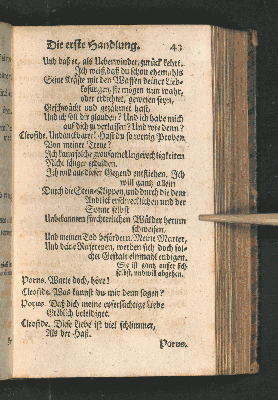 Die erste Handlung. 43
Und daß er, als Ueberwinder, zurück kehrt.
Ich weiß, daß du schon ehemahls
Seine Kräfte mit den Waffen deiner Lieb-
kosungen, sie mögen nun wahr,
oder erdichtet, gewesen seyn,
Geschwächt und gezähmet hast.
Und ich soll dir glauben? Und ich habe mich
auf dich zu verlassen? Und wie denn?
Cleofide. Undanckbarer! Hast du so wenig Proben
Von meiner Treue?
Ich kan solche grausame Ungerechtigkeiten
Nicht länger schulden.
Ich will aus dieser Gegend entfliehen. Ich
will gantz allein
Durch die Stein-Klippen, und durch die dem
Anblick erschrecklichen und der
Sonne selbst
Unbekannten fürchterlichen Wälder herum
schweifen.
Und meinen Tod befördern. Meine Marter,
Und deine Raserey, werden sich doch sol-
cher Gestalt einmahl endigen.
Sie ist gantz ausser sich
selbst, und will abgehen.
Porus. Warte doch, höre!
Cleofide. Was kannst du mir denn sagen?
Porus. Daß dich meine eyfersüchtige Liebe
Gröblich beleidiget.
Cleofide. Diese Liebe ist viel schlimmer,
Als der Haß.
Porus.